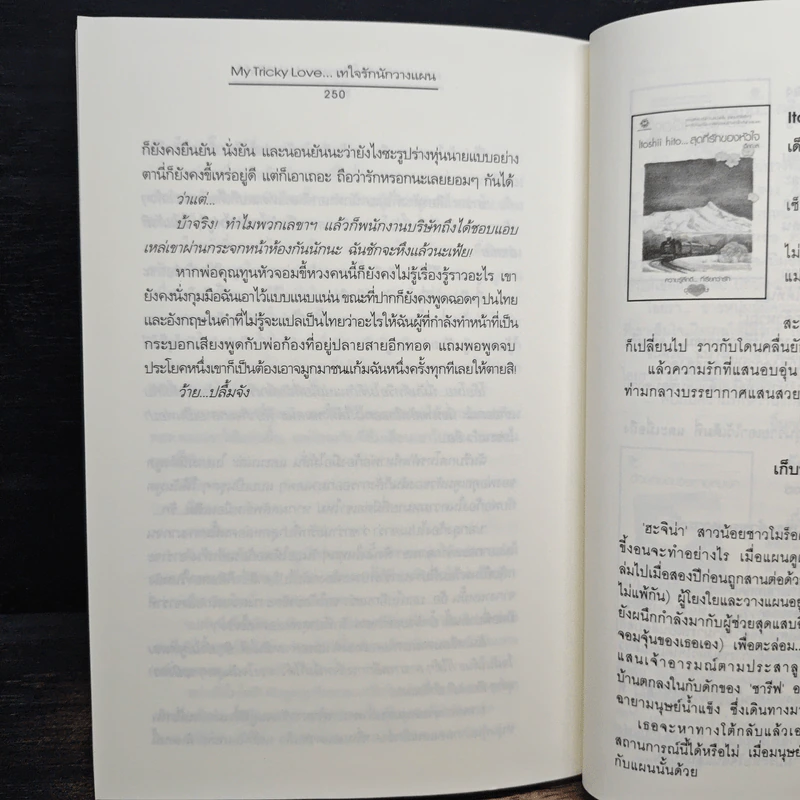 My Tricky Love... เทใจรักนักวางแผน
250
ก็ยังคงยืนยัน นั่งยัน และนอนยันนะว่ายังไงซะรูปร่างหุ่นนายแบบอย่าง
ตานี่ก็ยังคงขี้เหร่อยู่ดี แต่ก็เอาเถอะ ถือว่ารักหรอกนะเลยยอมๆ กันได้
ว่าแต่...
บ้าจริง! ทำไมพวกเลขาฯ แล้วก็พนักงานบริษัทถึงได้ชอบแอบ
เหล่เขาผ่านกระจกหน้าห้องกันนักนะ ฉันชักจะหึงแล้วนะเฟ้ย!
หากพ่อคุณทูนหัวจอมขี้หวงคนนี้ก็ยังคงไม่รู้เรื่องรู้ราวอะไร เขา
ยังคงนั่งกุมมือฉันเอาไว้แบบแนบแน่น ขณะที่ปากก็ยังคงพูดฉอดๆ ปนไทย
และอังกฤษในคำที่ไม่รู้จะแปลเป็นไทยว่าอะไรให้ฉันผู้ที่กำลังทำหน้าที่เป็น
กระบอกเสียงพูดกับพ่อก้องที่อยู่ปลายสายอีกทอด แถมพอพูดจบ
ประโยคหนึ่งเขาก็เป็นต้องเอาจมูกมาชนแก้มฉันหนึ่งครั้งทุกทีเลยให้ตายสิ!
ว้าย...ปลื้มจัง
Itoshii hito... สุดที่รักของหัวใจ
ความรู้สึกดี... ที่เรียกว่ารัก
Ito
เด็
เซ็
ไม่
แม
สะ
ก็เปลี่ยนไป ราวกับโดนคลื่นยั
แล้วความรักที่แสนอบอุ่น
ท่ามกลางบรรยากาศแสนสวย
เก็บ
'ฮะจิน่า' สาวน้อยชาวโมร็อค
ขี้งอนจะทำอย่างไร เมื่อแผนดูด
ล่มไปเมื่อสองปีก่อนถูกสานต่อด้ว
ไม่แพ้กัน) ผู้โยงใยและวางแผนอยู
ยังผนึกกำลังมากับผู้ช่วยสุดแสบค
จอมจุ้นของเธอเอง) เพื่อตะล่อม...
แสนเจ้าอารมณ์ตามประสาลู
บ้านตกลงในกับดักของ 'ซารีฟ' อ
ฉายามนุษย์น้ำแข็ง ซึ่งเดินทางมา
เธอจะหาทางโต้กลับแล้วเอ
สถานการณ์นี้ได้หรือไม่ เมื่อมนุษย
กับแผนนั้นด้วย